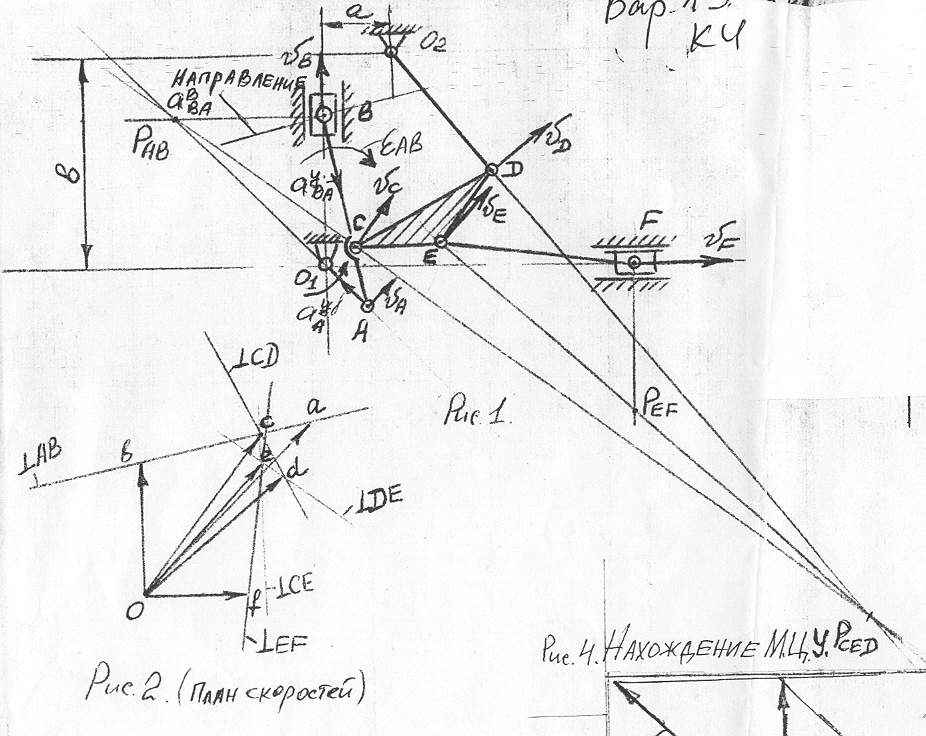 Вар.13.
К4
a
O₂
v_B
НАПРАВЛЕНИЕ
a^B_BA
B
P_AB
ε_AB
в
v_D
a^ц_BA
v_C
D
v_E
C
F
v_F
E
O₁
a^ц_A
v_A
A
P_EF
Рис.1.
⊥CD
c
a
в
⊥AB
e
d
⊥DE
O
f
⊥CE
⊥EF
Рис.2. (План скоростей)
Рис.4. НАХОЖДЕНИЕ М.Ц.У. P_CED